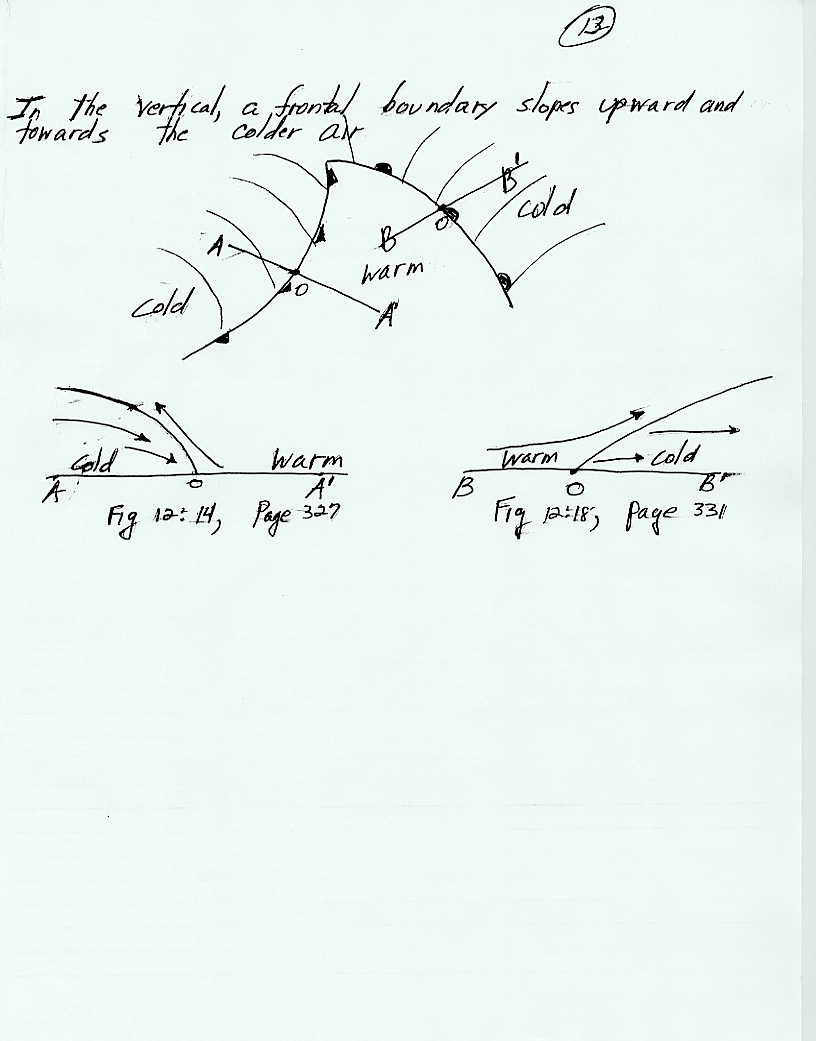 13
In the vertical, a frontal boundary slopes upward and
towards the colder air
B'
cold
A
B
O
warm
cold
O
A'
cold
warm
warm
cold
A
O
A'
B
O
B'
Fig 12-14, Page 327
Fig 12-18, page 331